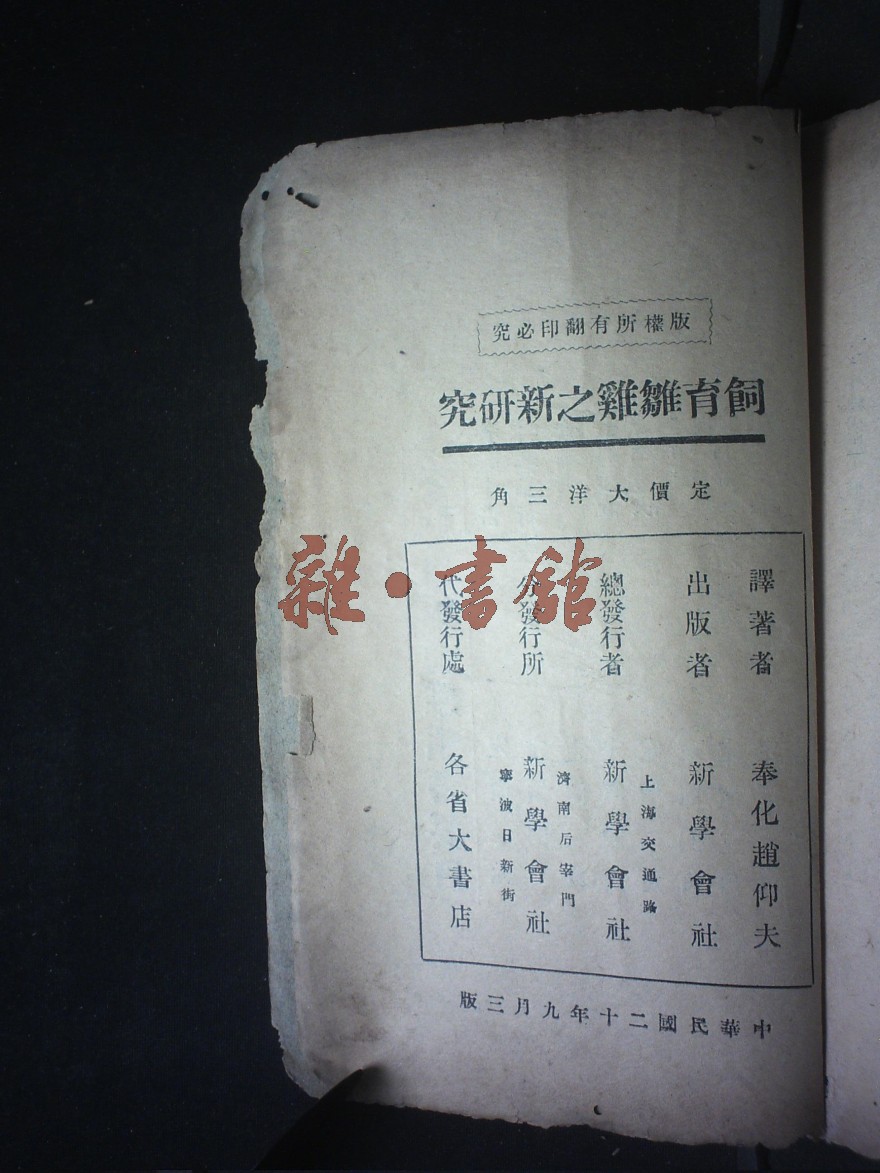 版權所有翻印必究
飼育雛雞之新研究
定價大洋三角
譯著者 奉化趙仰夫
出版者 新學會社
總發行者 上海交通路 新學會社
分發行所 濟南后宰門 新學會社 寧波日新街
代發行處 各省大書店
中華民國二十年九月三版
雜·書館